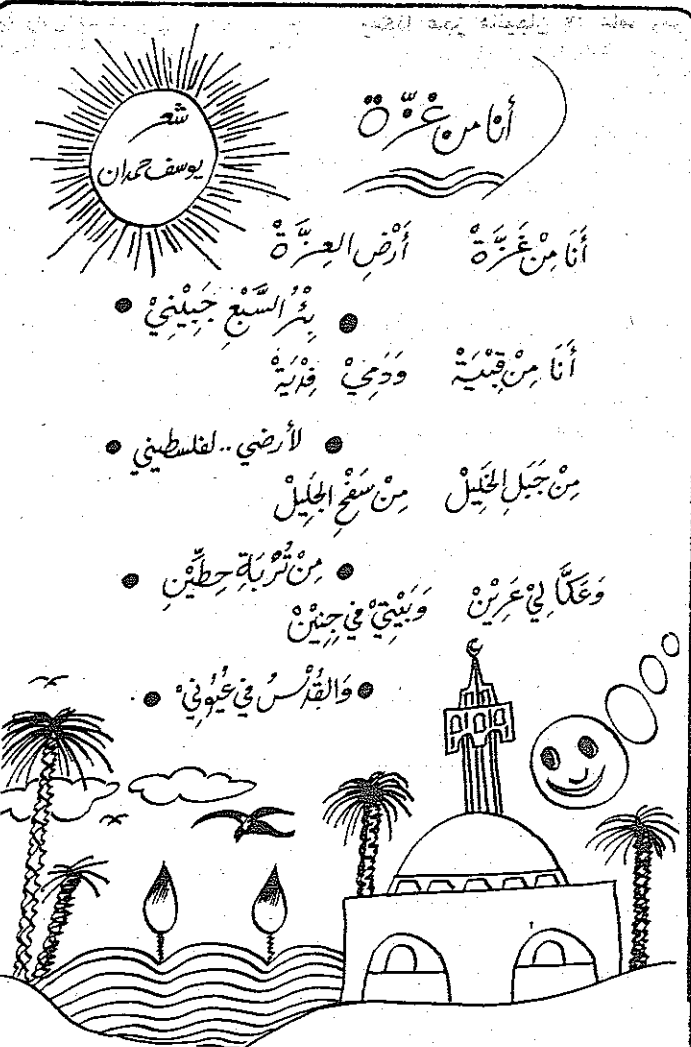 أنا من غزّة
شعر
يوسف حمدان
أَنَا مِنْ غَزَّةْ    أَرْضِ العِزَّةْ
● بِئْرُ السَّبْعِ جَبِيْنِيْ ●
أَنَا مِنْ قِبْيَةْ    وَدَمِيْ فِدْيَةْ
● لأرضي .. لفلسطيني ●
مِنْ جَبَلِ الخَلِيلْ    مِنْ سَفْحِ الجَلِيلْ
● مِنْ تُرْبَةِ حِطِّيْنِ ●
وَعَكَّا لِيْ عَرِيْنْ    وَبَيْتِيْ فِي جِنِيْنْ
● وَالقُدْسُ فِي عُيُوْنِيْ ●